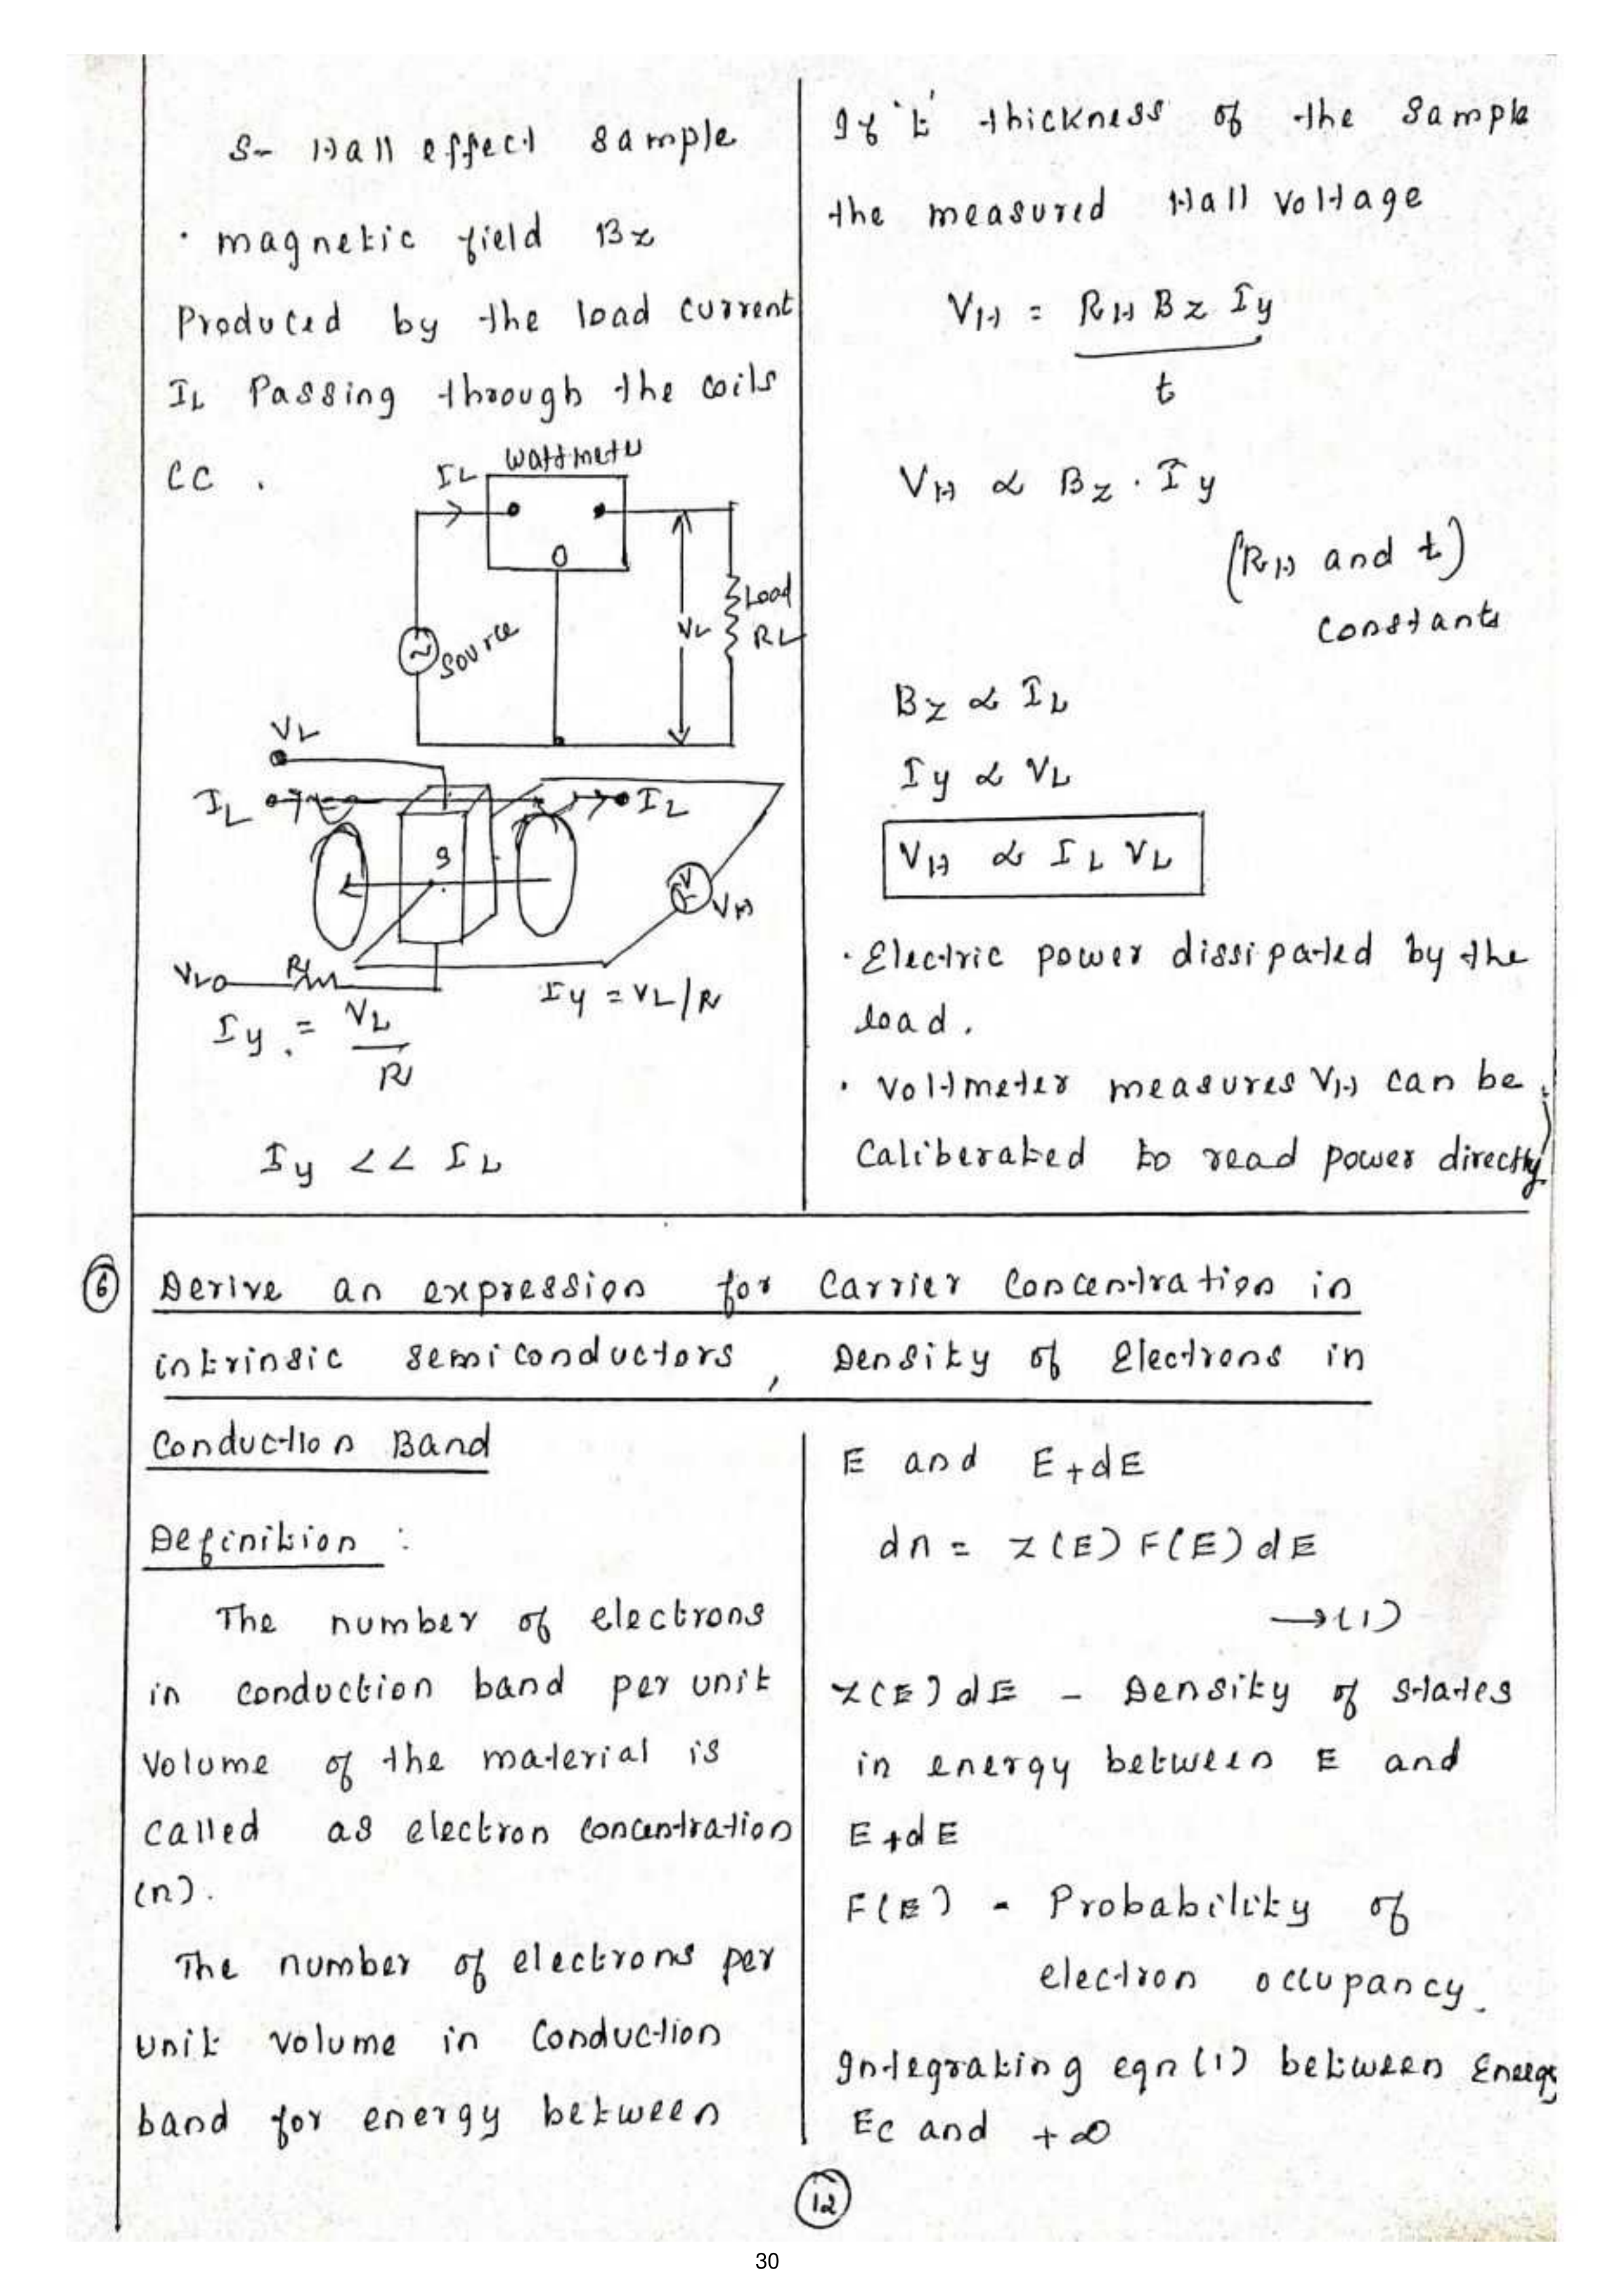 S- Hall effect sample
· magnetic field Bz
Produced by the load current
IL Passing through the coils
CC .
IL Wattmeter
Source
VL
Load
RL
VL
IL
IL
S
V
VH
VL
R
Iy = VL/R
Iy = VL
R
Iy << IL
If 't' thickness of the sample
the measured Hall voltage
VH = RH Bz Iy
t
VH ∝ Bz . Iy
(RH and t)
constants
Bz ∝ IL
Iy ∝ VL
VH ∝ IL VL
· Electric power dissipated by the
load.
· Voltmeter measures VH can be
Caliberated to read power directly
6 Derive an expression for Carrier Concentration in
intrinsic semiconductors, Density of Electrons in
Conduction Band
Definition :
The number of electrons
in conduction band per unit
volume of the material is
called as electron concentration
(n).
The number of electrons per
unit volume in Conduction
band for energy between
E and E+dE
dn = Z(E) F(E) dE
→(1)
Z(E) dE – Density of states
in energy between E and
E+dE
F(E) - Probability of
electron occupancy.
Integrating eqn (1) between Energy
Ec and +∞
12
30